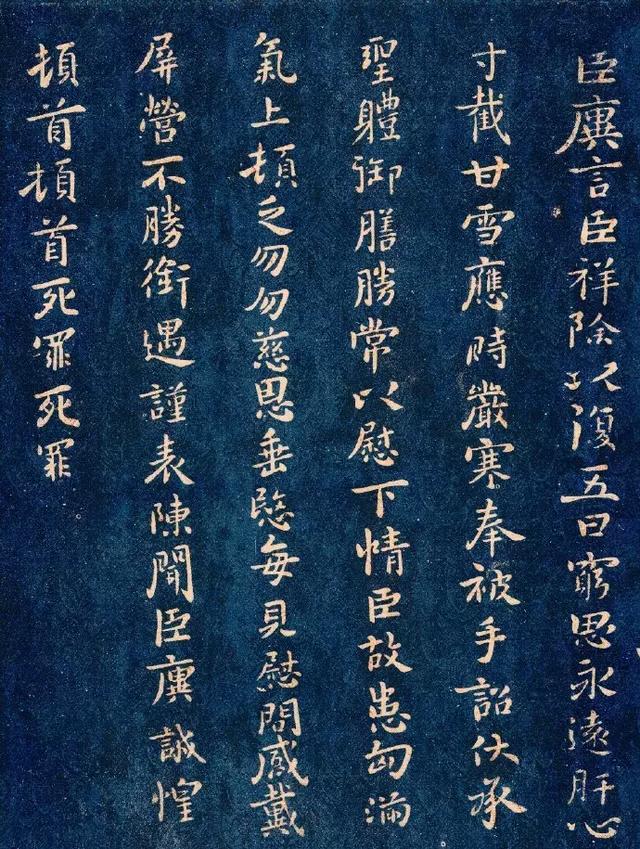 臣廙言臣祥除以復五日窮思永遠肝心
寸截甘雪應時嚴寒奉被手詔伏承
聖體御膳勝常以慰下情臣故患匈滿
氣上頓乏勿勿慈恩垂愍每見慰問感戴
屏營不勝銜遇謹表陳聞臣廙誠惶
頓首頓首死罪死罪